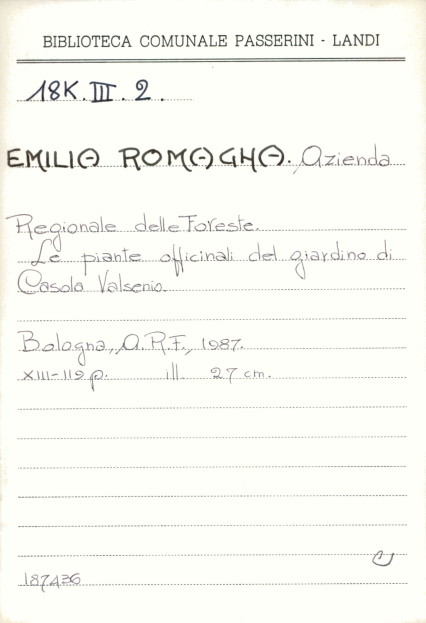 BIBLIOTECA COMUNALE PASSERINI - LANDI
18K.III.2.
EMILIA ROMAGNA. Azienda
Regionale delle Foreste.
Le piante officinali del giardino di
Casola Valsenio.
Bologna, A.R.F., 1987.
XIII-119 p. ill. 27 cm.
187436